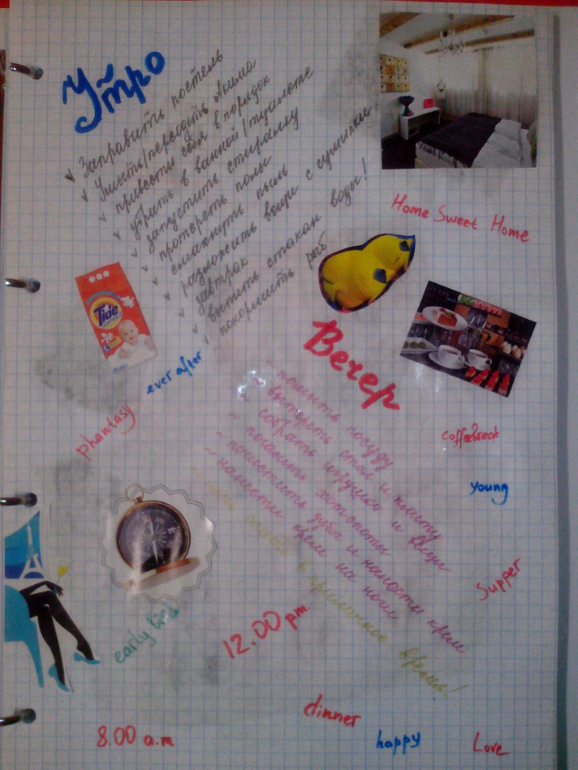 Утро
Заправить постель
Умыть/переодеть Макима
привести себя в порядок
убрать в ванной/туалете
запустить стиралку
протереть полы
смахнуть пыль
разложить вещи с сушилки
завтрак
выпить стакан воды!
покормить рыб
Home Sweet Home
Tide
ever after
phantasy
Вечер
помыть посуду
вытереть стол и плиту
собрать игрушки и вещи
почистить зубы и нанести крем
нанести крем на ноги
coffeebreak
young
Supper
early bird
12.00 p.m.
8.00 a.m
dinner
happy
Love